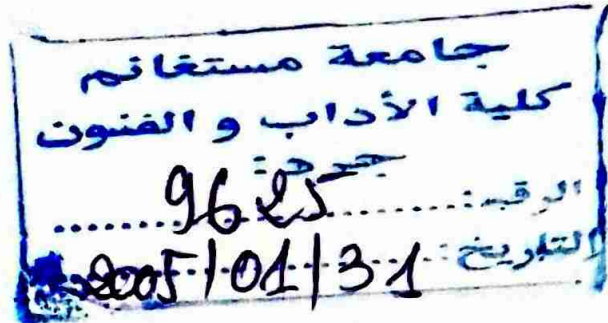 جامعة مستغانم
كلية الأداب و الفنون
جرد:
الرقم: 9625
التاريخ: 2005/01/31